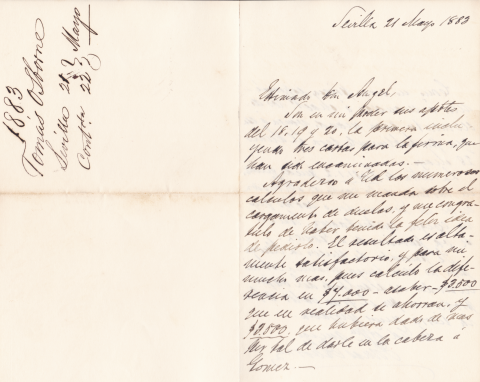 1883
Tomás Osborne
Sevilla 21 Mayo
Contda 22 "
Sevilla 21 Mayo 1883
Estimado Don Angel,
Son en mi poder sus aptas
del 18. 19 y 20, la primera inclu
yendo tres cartas para la firma, que
han sido encaminadas. —
Agradezco á Vd. los numerosos
cálculos que me manda sobre el
cargamento de duelas, y me congra-
tulo de haber tenido la feliz idea
de pedirlo. El resultado es alta-
mente satisfactorio, y para mi
mucho mas, pues calculó la dife-
rencia en $7.000 – á saber –
que en realidad se ahorran, y
que hubiera dado de mas
tal de darle en la cabeza á
Gomez. —